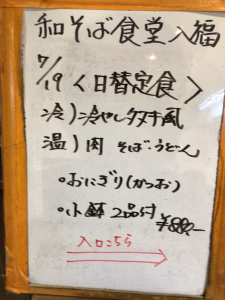 和そば食堂 入福
7/19 〈日替定食〉
冷)冷やしタヌキ風
温)肉 そば・うどん
。おにぎり(かつお)
。小鉢 2品付
¥880-
入口こちら